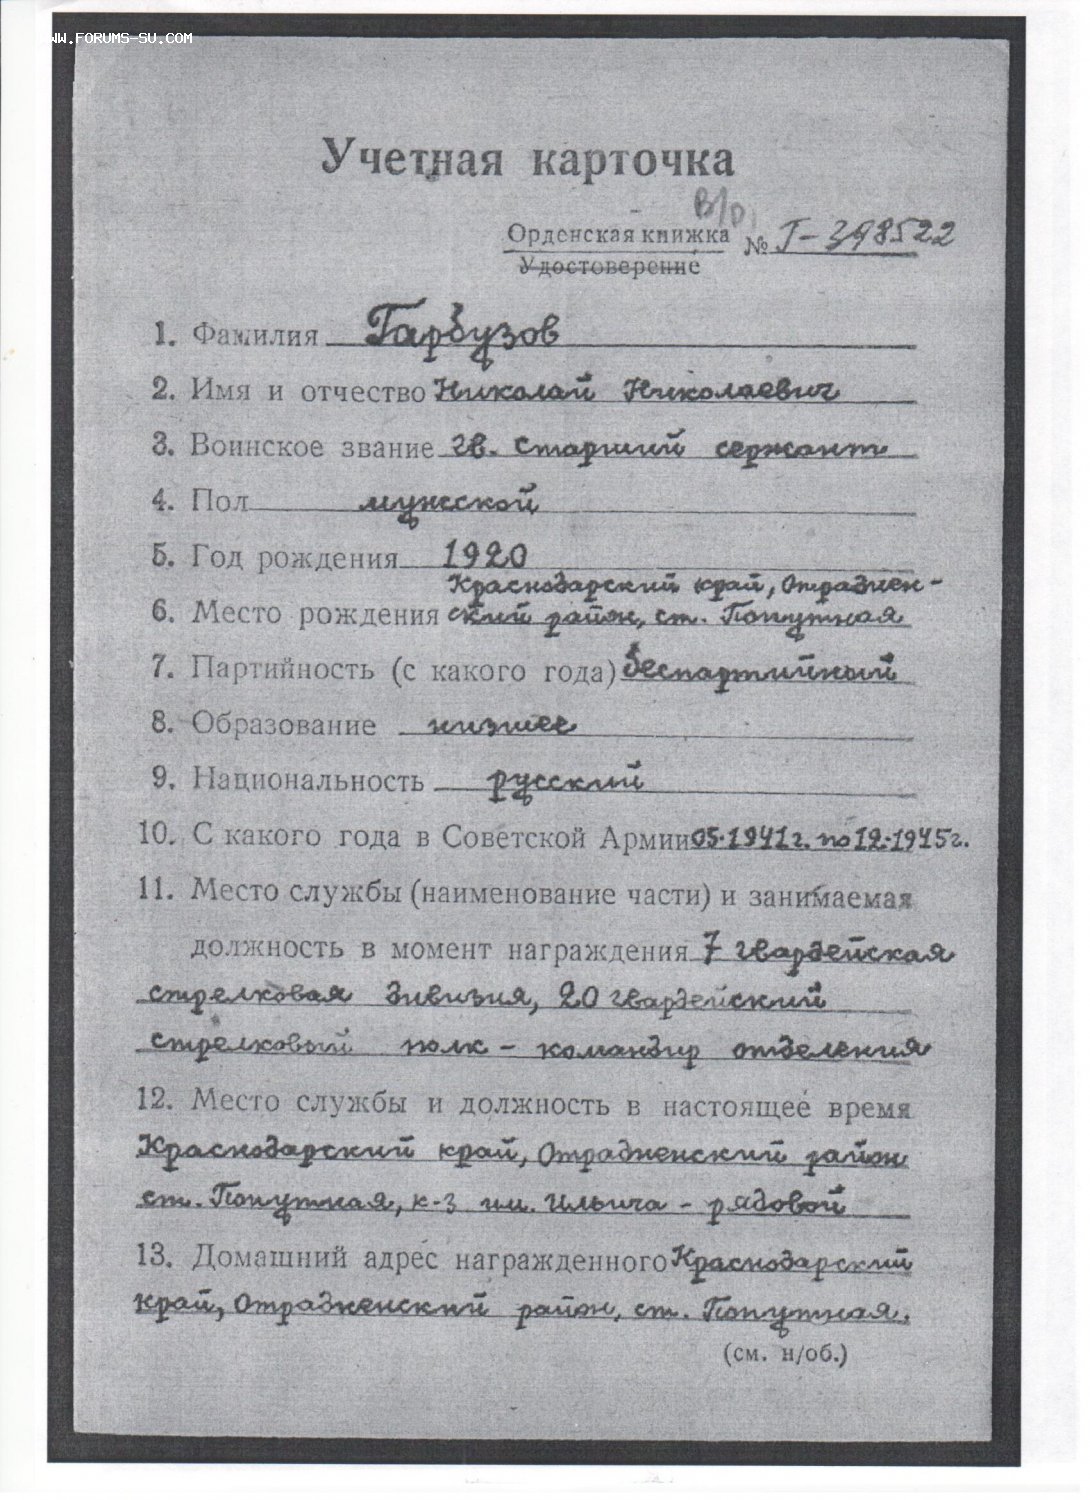 WW.FORUMS-SU.COM
Учетная карточка
Орденская книжка
Удостоверение
№ Г-398522
1. Фамилия Гарбузов
2. Имя и отчество Николай Николаевич
3. Воинское звание гв. старший сержант
4. Пол мужской
5. Год рождения 1920
Краснодарский край, Отраднен-
6. Место рождения ский район, ст. Попутная
7. Партийность (с какого года) беспартийный
8. Образование низшее
9. Национальность русский
10. С какого года в Советской Армии 05.1941г. по 12.1945г.
11. Место службы (наименование части) и занимаемая
должность в момент награждения 7 гвардейская
стрелковая дивизия, 20 гвардейский
стрелковый полк – командир отделения
12. Место службы и должность в настоящее время
Краснодарский край, Отрадненский район
ст. Попутная, к-з им. Ильича – рядовой
13. Домашний адрес награжденного Краснодарский
край, Отрадненский район, ст. Попутная.
(см. н/об.)